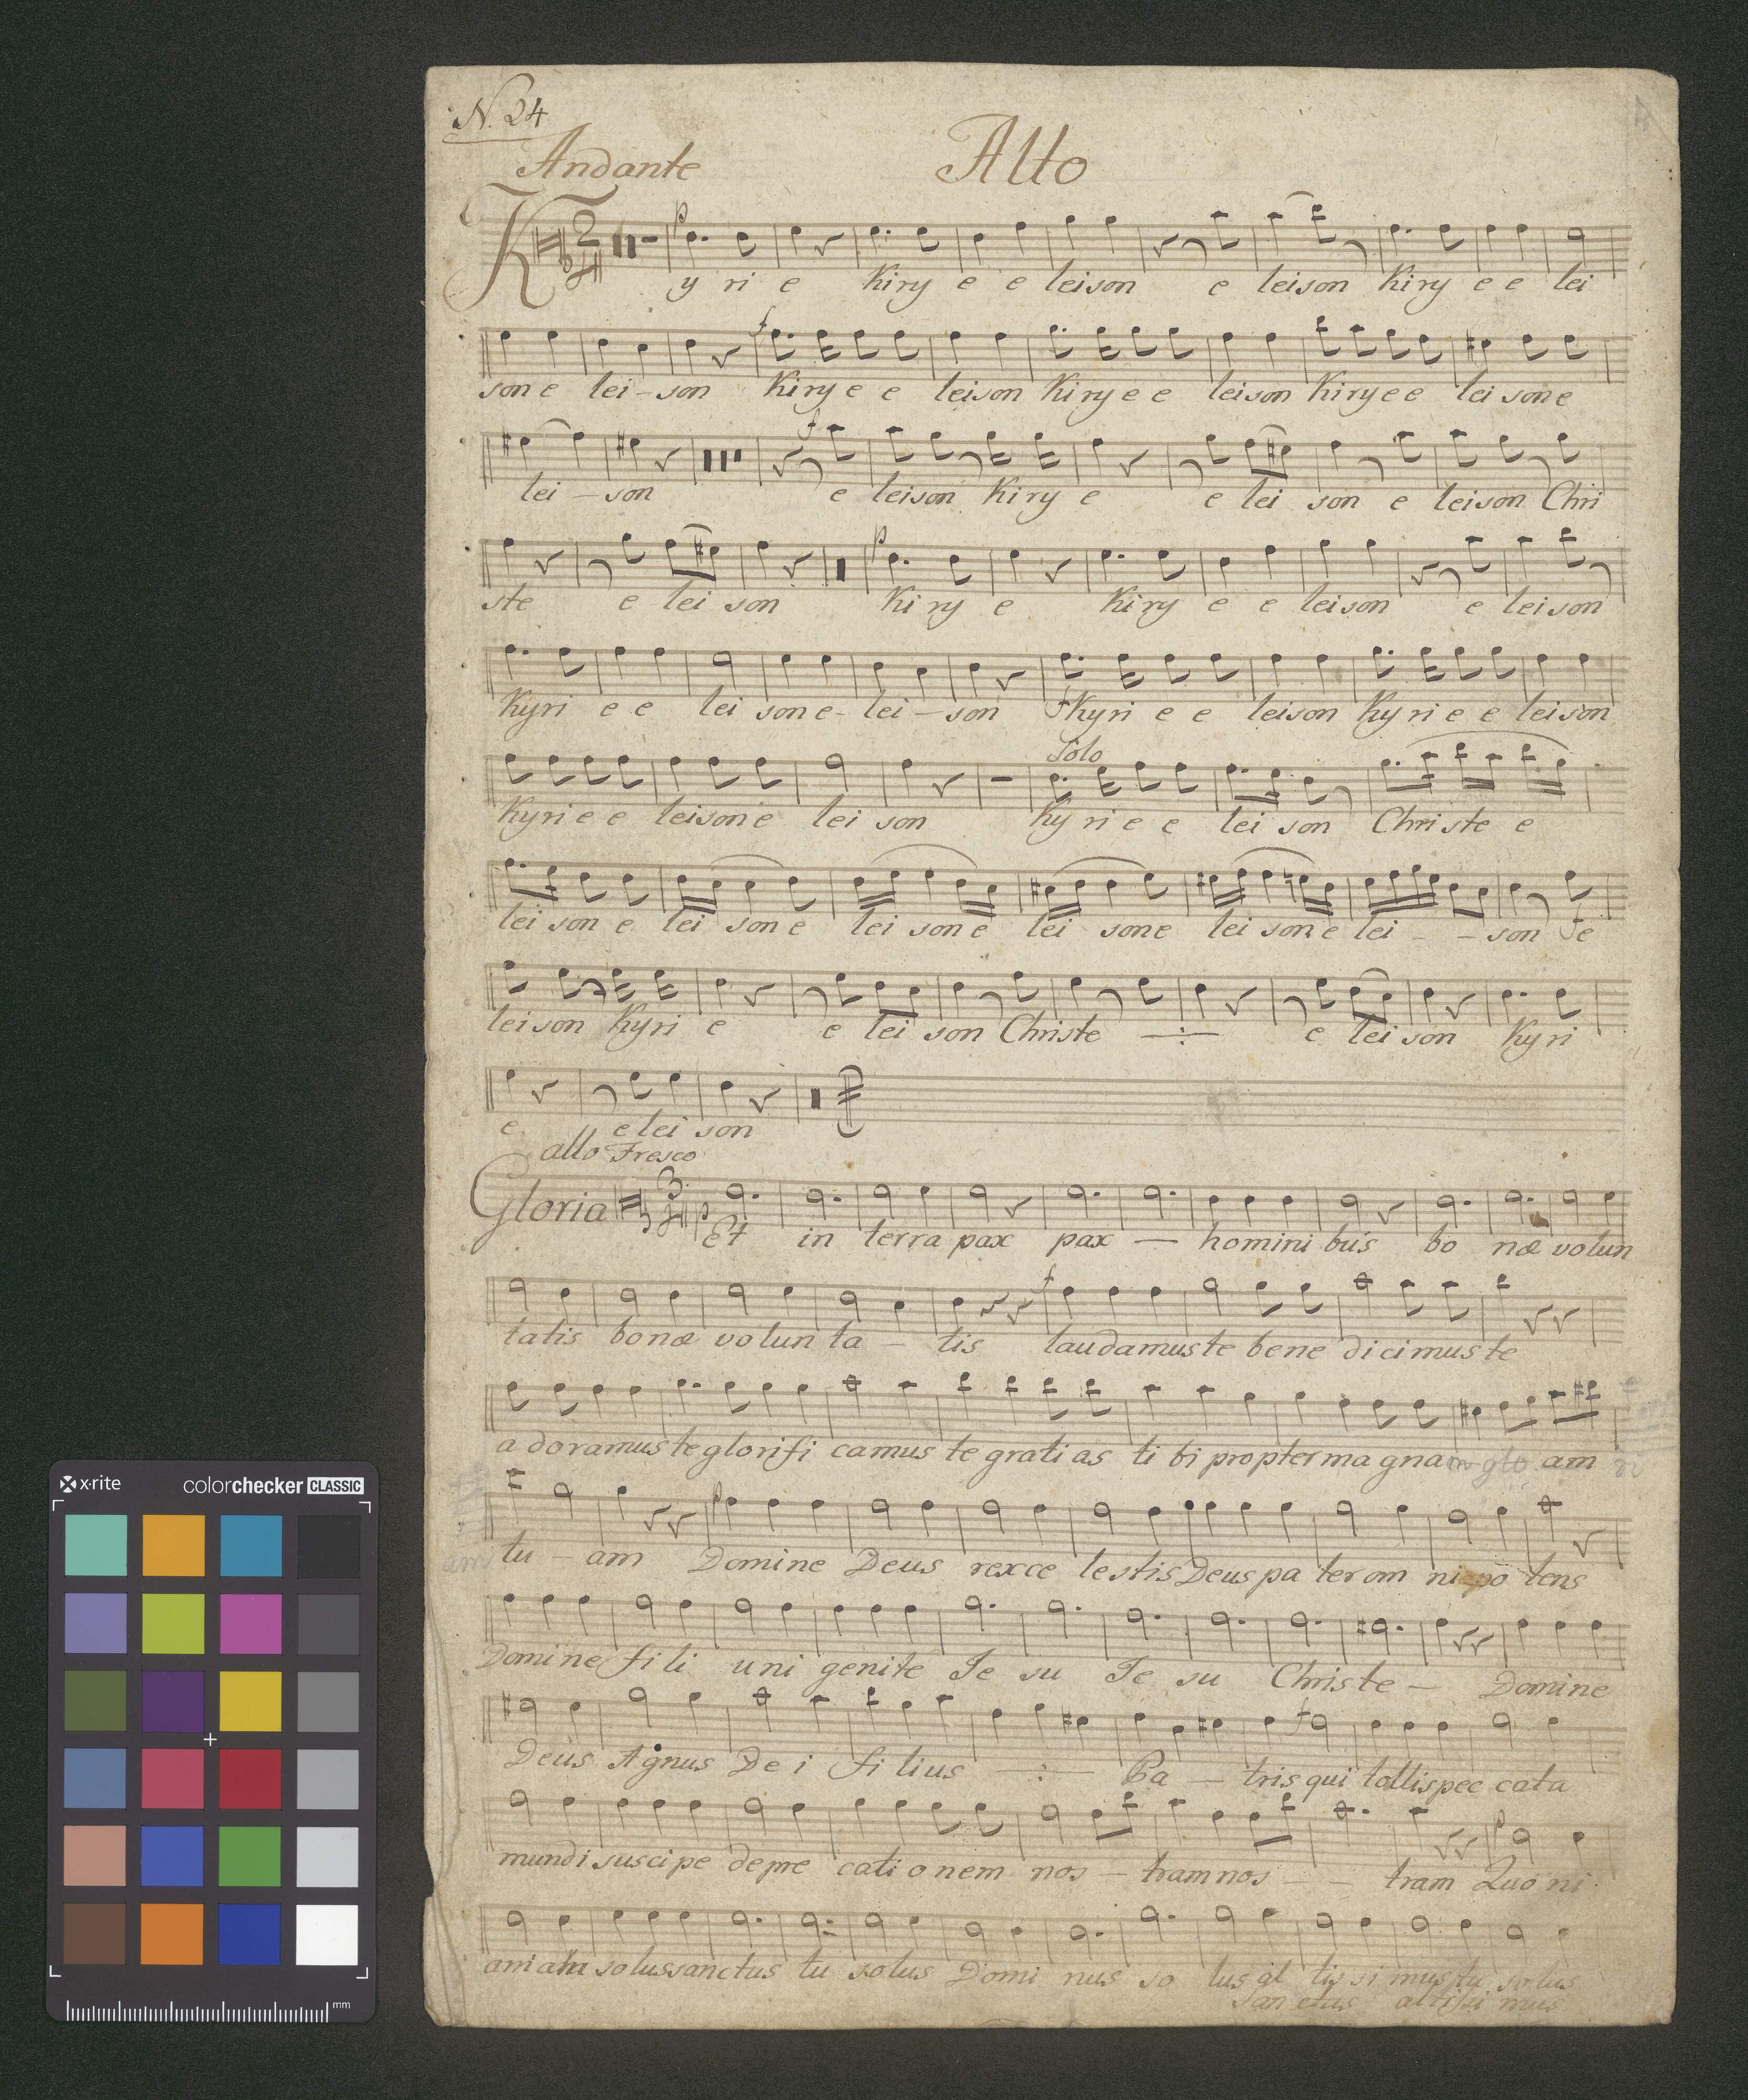 N. 24
Andante
Alto
Kyri e Kiry e e leison e leison Kiry e e lei
son e lei - son Kiry e e leison Kiry e e leison Kiryee lei son e
lei - son e leison Kiry e e lei son e leison Chri
ste e lei son Kiry e Kiry e e leison e leison
Kyri e e lei son e - lei - son Kyri e e leison Kyri e e leison
Solo
Kyri e e leison e lei son Kyri e e lei son Christe e
lei son e lei son e lei son e lei son e lei son e lei - - son e
leison Kyri e e lei son Christe —:— e lei son Kyri
e e lei son
allo Fresco
Gloria Et in terra pax pax — homini bus bo næ volun
tatis bonæ volun ta - tis laudamus te bene dicimus te
adoramus te glorifi camus te grati as ti bi propter ma gnam glo am
tu - am Domine Deus rex ce lestis Deus pa ter om ni po tens
Domine fili uni genite Je su Je su Christe — Domine
Deus Agnus De i fi lius —:— Pa — tris qui tollis pec cata
mundi suscipe depre cati o nem nos - tram nos - - tram Quo ni
am tu solus sanctus tu solus Domi nus so lus al tis si mus tu solus
San ctus altissi mus
x·rite
colorchecker CLASSIC
mm